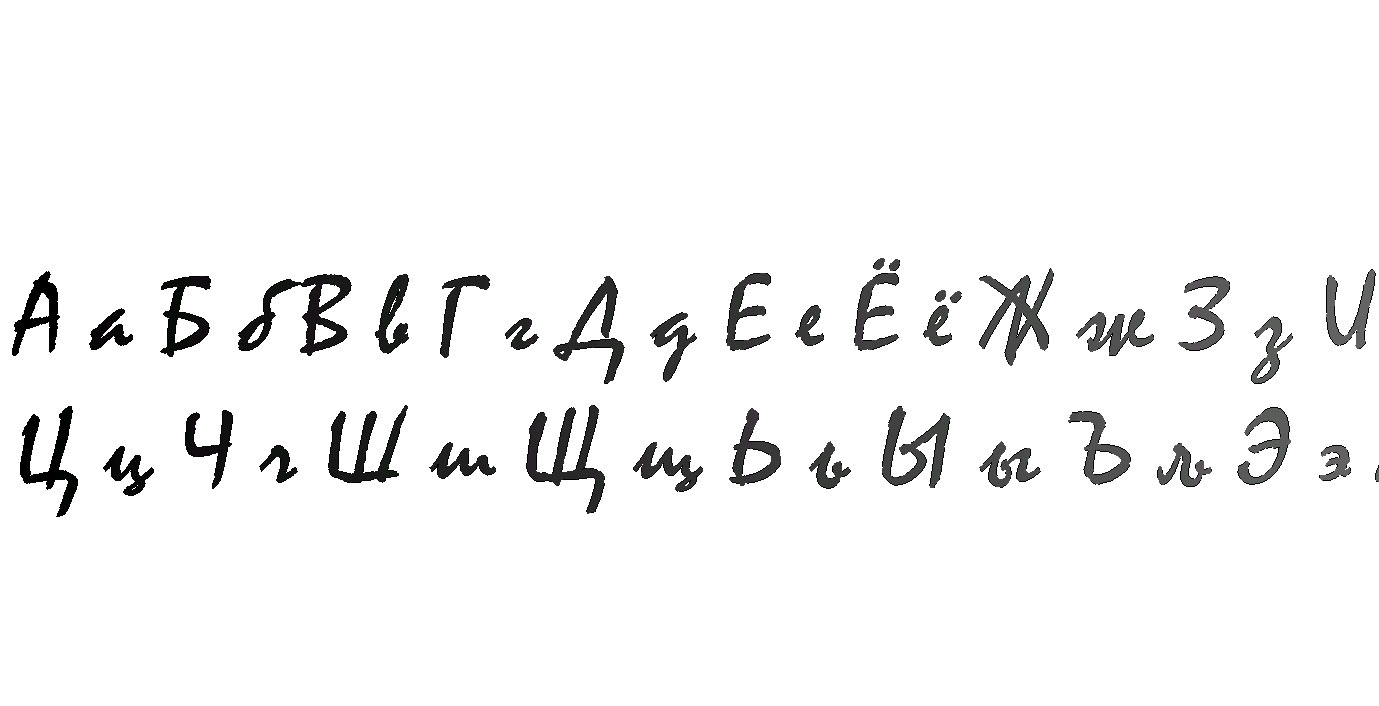 А а Б б В в Г г Д д Е е Ё ё Ж ж З з И
Ц ц Ч ч Ш ш Щ щ Ь ь Ы ы Ъ ъ Э э